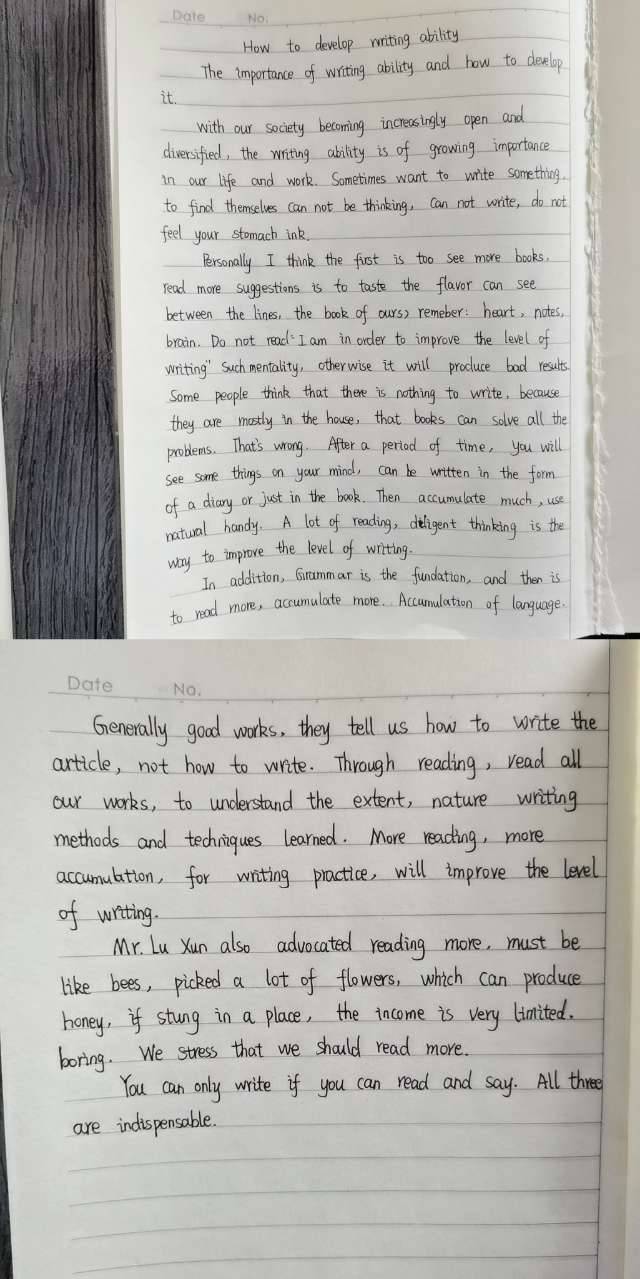 Date No.
How to develop writing ability
The importance of writing ability and how to develop
it.
With our society becoming increasingly open and
diversified, the writing ability is of growing importance
in our life and work. Sometimes want to write something,
to find themselves can not be thinking, can not write, do not
feel your stomach ink.
Personally I think the first is too see more books,
read more suggestions is to taste the flavor can see
between the lines, the book of ours, remeber: heart, notes,
brain. Do not read "I am in order to improve the level of
writing" such mentality, otherwise it will produce bad results.
Some people think that there is nothing to write, because
they are mostly in the house, that books can solve all the
problems. That's wrong. After a period of time, you will
see some things on your mind, can be written in the form
of a diary or just in the book. Then accumulate much, use
natural handy. A lot of reading, deligent thinking is the
way to improve the level of writing.
In addition, Grammar is the fundation, and then is
to read more, accumulate more. Accumulation of language.
Date No.
Generally good works, they tell us how to write the
article, not how to write. Through reading, read all
our works, to understand the extent, nature writing
methods and techniques learned. More reading, more
accumulation, for writing practice, will improve the level
of writing.
Mr. Lu Xun also advocated reading more, must be
like bees, picked a lot of flowers, which can produce
honey, if stung in a place, the income is very limited.
boring. We stress that we should read more.
You can only write if you can read and say. All three
are indispensable.